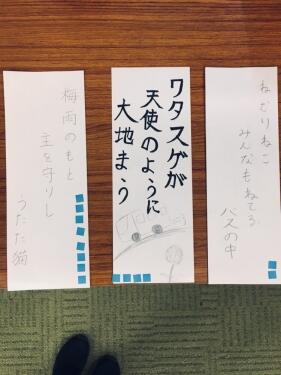 ねむりねこ
みんなもねてる
バスの中
ワタスゲが
天使のように
大地まう
梅雨のもと
主を守りし
うたた猫